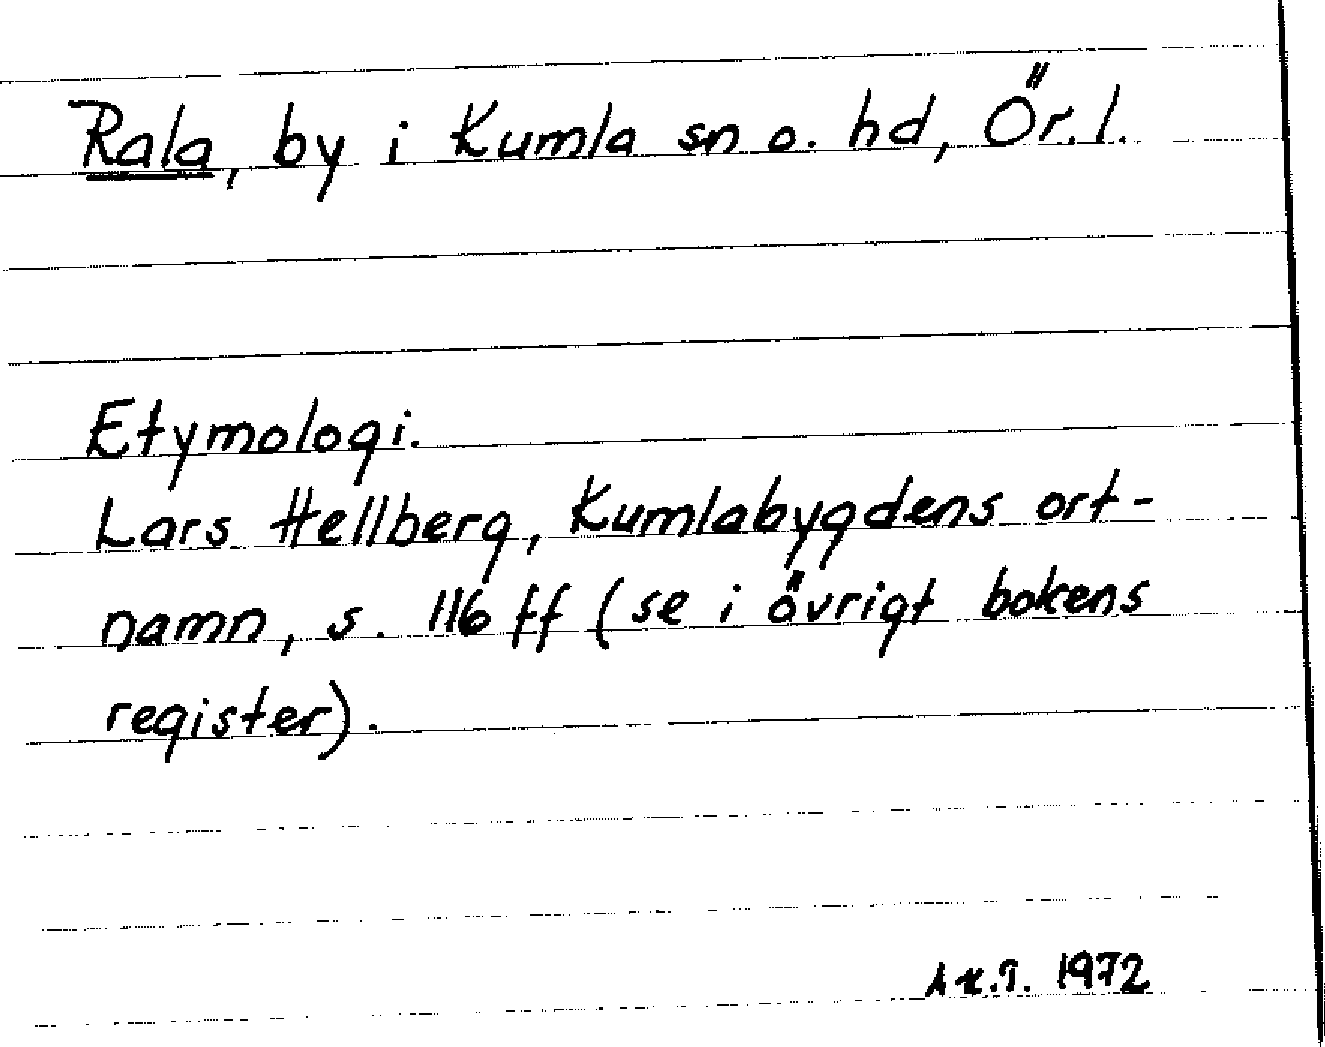 Rala, by i Kumla sn o. hd, Ör.l.
Etymologi.
Lars Hellberg, Kumlabygdens ort-
namn, s. 116 ff (se i övrigt bokens
register).
1972